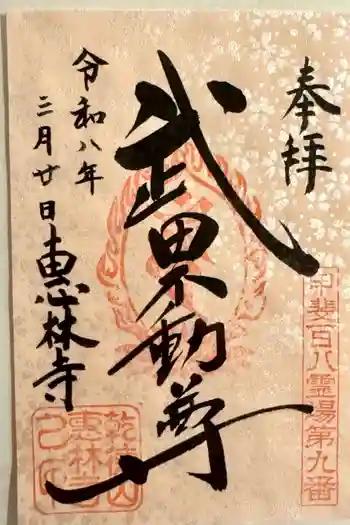 奉拝
甲斐百八霊場第九番
武田不動尊
令和八年
三月廿日
恵林寺
乾徳山
恵林寺